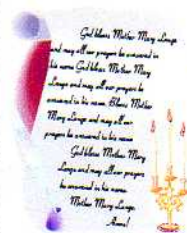 God bless Mother Mary Lange
and may all our prayers be answered in
his name God bless Mother Mary
Lange and may all our prayers be
answered in his name. Bless Mother
Mary Lange and may all our
prayers be answered in his name
God bless Mother Mary
Lange and may all our prayers
be answered in his name
Mother Mary Lange
Amen!